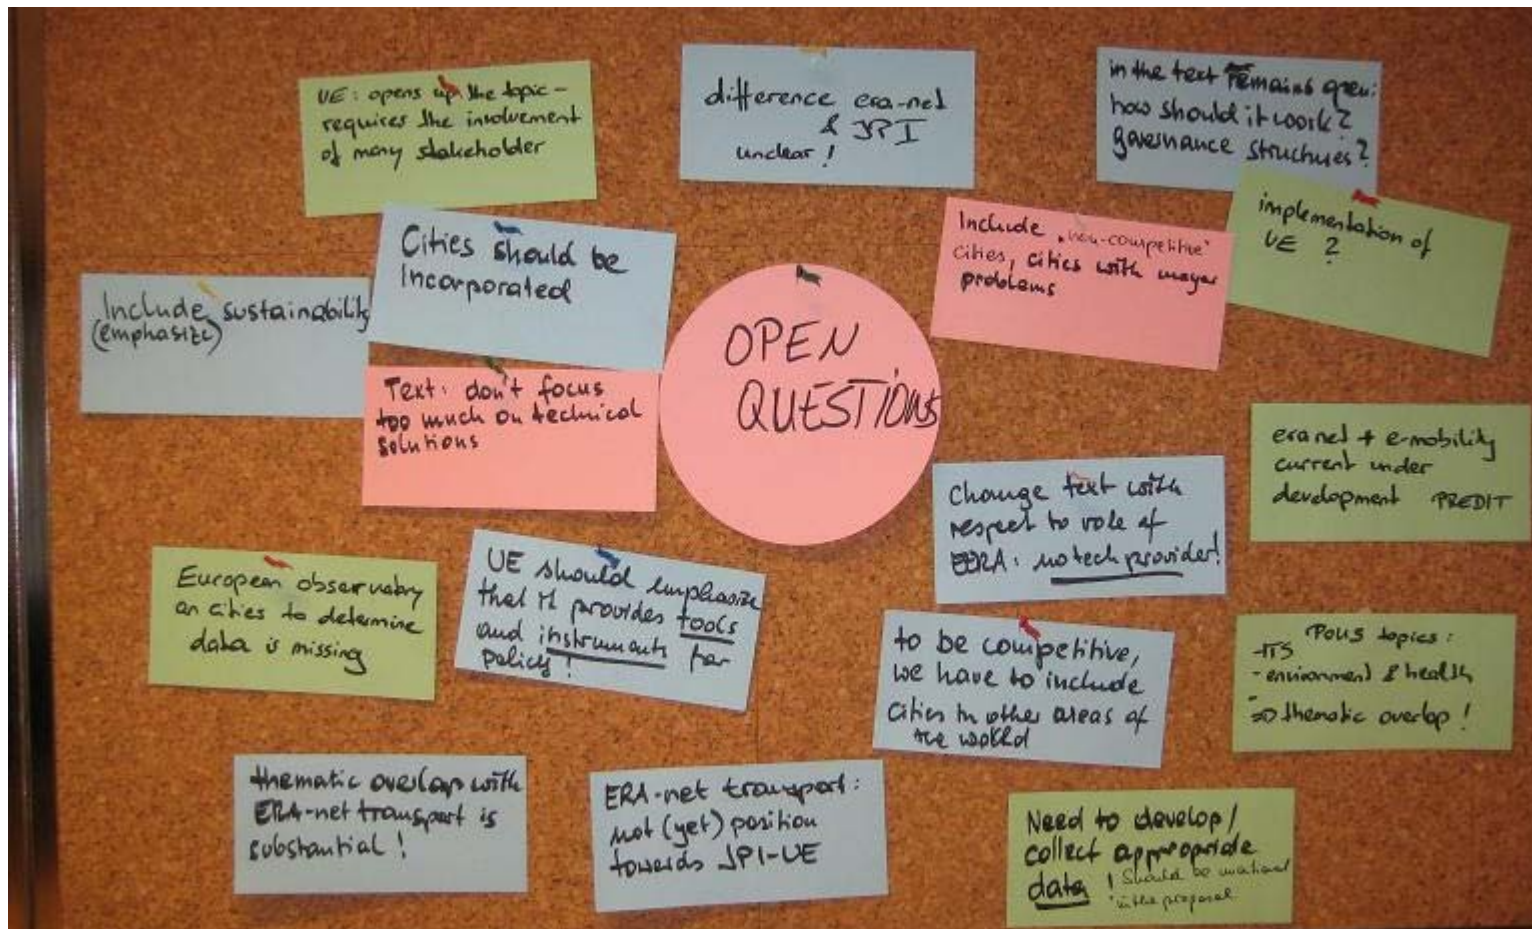 UE: opens up the topic -
requires the involvement
of many stakeholder
difference era-net
& JPI
unclear!
in the text remains open:
how should it work?
governance structures?
implementation of
UE ?
Include "non-competitive"
cities, cities with mayer
problems
Cities should be
Incorporated
Include sustainability
(emphasize)
Text: don't focus
too much on technical
solutions
OPEN
QUESTIONS
era net + e-mobility
current under
development PREDIT
Change text with
respect to role of
EERA: no tech provider!
European observatory
on cities to determine
data is missing
UE should emphasize
that it provides tools
and instruments for
policy!
to be competitive,
we have to include
cities in other areas of
the world
POLIS topics:
-ITS
- environment & health
=> thematic overlap!
thematic overlap with
ERA-net transport is
substantial!
ERA-net transport:
not (yet) position
towards JPI-UE
Need to develop/
collect appropriate
data! Should be
in the proposal